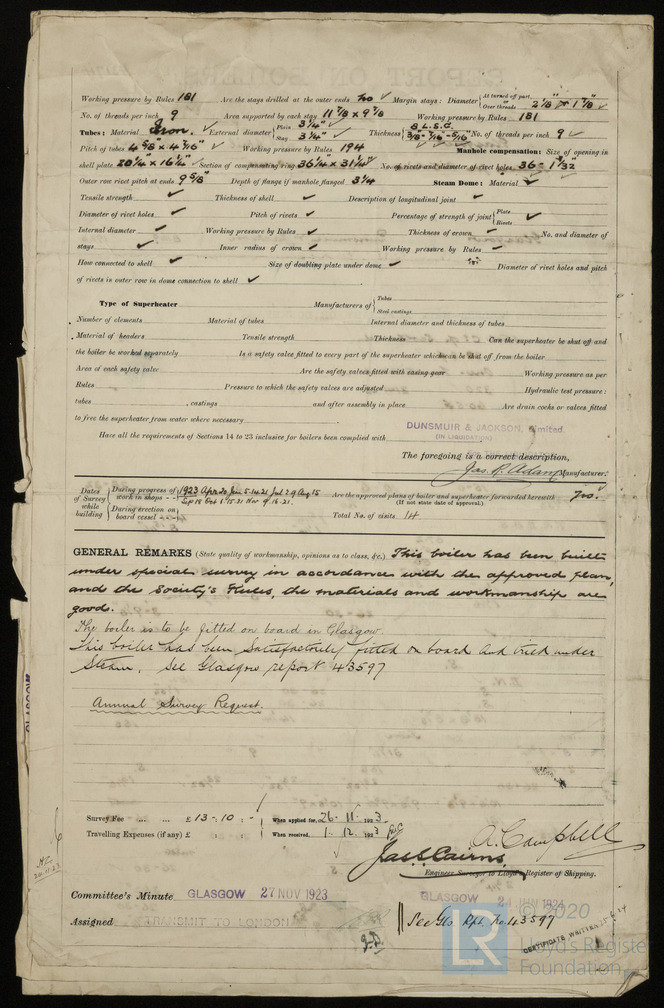 Working pressure by Rules 181 Are the stays drilled at the outer ends No Margin stays: Diameter { At turned off part, or Over threads 2 1/8" & 1 7/8"
No. of threads per inch 9 Area supported by each stay 11 7/8 x 9 7/8 Working pressure by Rules 181
Tubes: Material Iron. External diameter { Plain 3 1/4" Stay 3 1/4" Thickness { 8 L.S.G. 3/8"-7/16"-5/16" No. of threads per inch 9
Pitch of tubes 4 5/8" x 4 7/16" Working pressure by Rules 194 Manhole compensation: Size of opening in
shell plate 20 1/4" x 16 1/4" Section of compensating ring 36 1/4" x 31 1/4" No. of rivets and diameter of rivet holes 36 - 1 7/32
Outer row rivet pitch at ends 9 5/8" Depth of flange if manhole flanged 3 1/4 Steam Dome: Material
Tensile strength Thickness of shell Description of longitudinal joint
Diameter of rivet holes Pitch of rivets Percentage of strength of joint { Plate Rivets
Internal diameter Working pressure by Rules Thickness of crown No. and diameter of
stays Inner radius of crown Working pressure by Rules
How connected to shell Size of doubling plate under dome Diameter of rivet holes and pitch
of rivets in outer row in dome connection to shell
Type of Superheater Manufacturers of { Tubes Steel castings
Number of elements Material of tubes Internal diameter and thickness of tubes
Material of headers Tensile strength Thickness Can the superheater be shut off and
the boiler be worked separately Is a safety valve fitted to every part of the superheater which can be shut off from the boiler
Area of each safety valve Are the safety valves fitted with easing gear Working pressure as per
Rules Pressure to which the safety valves are adjusted Hydraulic test pressure:
tubes , castings and after assembly in place Are drain cocks or valves fitted
to free the superheater from water where necessary
DUNSMUIR & JACKSON, Limited.
(IN LIQUIDATION)
Have all the requirements of Sections 14 to 23 inclusive for boilers been complied with
The foregoing is a correct description,
Jas. R. Adam Manufacturer.
Dates of Survey while building { During progress of work in shops - - 1923 Apr 20 Jun 5.14.21 Jul 2.9 Aug 15 Sep 18 Oct 1.15.31 Nov 9.16.21. Are the approved plans of boiler and superheater forwarded herewith Yes.
(If not state date of approval.)
During erection on board vessel - - - Total No. of visits 14
GENERAL REMARKS (State quality of workmanship, opinions as to class, &c.) This boiler has been built
under special survey in accordance with the approved plan,
and the Society's Rules, the materials and workmanship are
good.
The boiler is to be fitted on board in Glasgow.
This boiler has been satisfactorily fitted on board and tried under
Steam, see Glasgow report 43597
Annual Survey Request.
Survey Fee ... ... £ 13-.10 : - When applied for, 26. 11. 1923.
Travelling Expenses (if any) £ : : When received, 1. 12. 1923
A. Campbell
Jas. S. Cairns.
Engineer Surveyor to Lloyd's Register of Shipping.
Committee's Minute GLASGOW 27 NOV 1923 GLASGOW 2 JUL 1924
Assigned TRANSMIT TO LONDON See Gls Rpt. No. 43597
CERTIFICATE WRITTEN
© 2020
LR Lloyd's Register
Foundation
GLASGOW